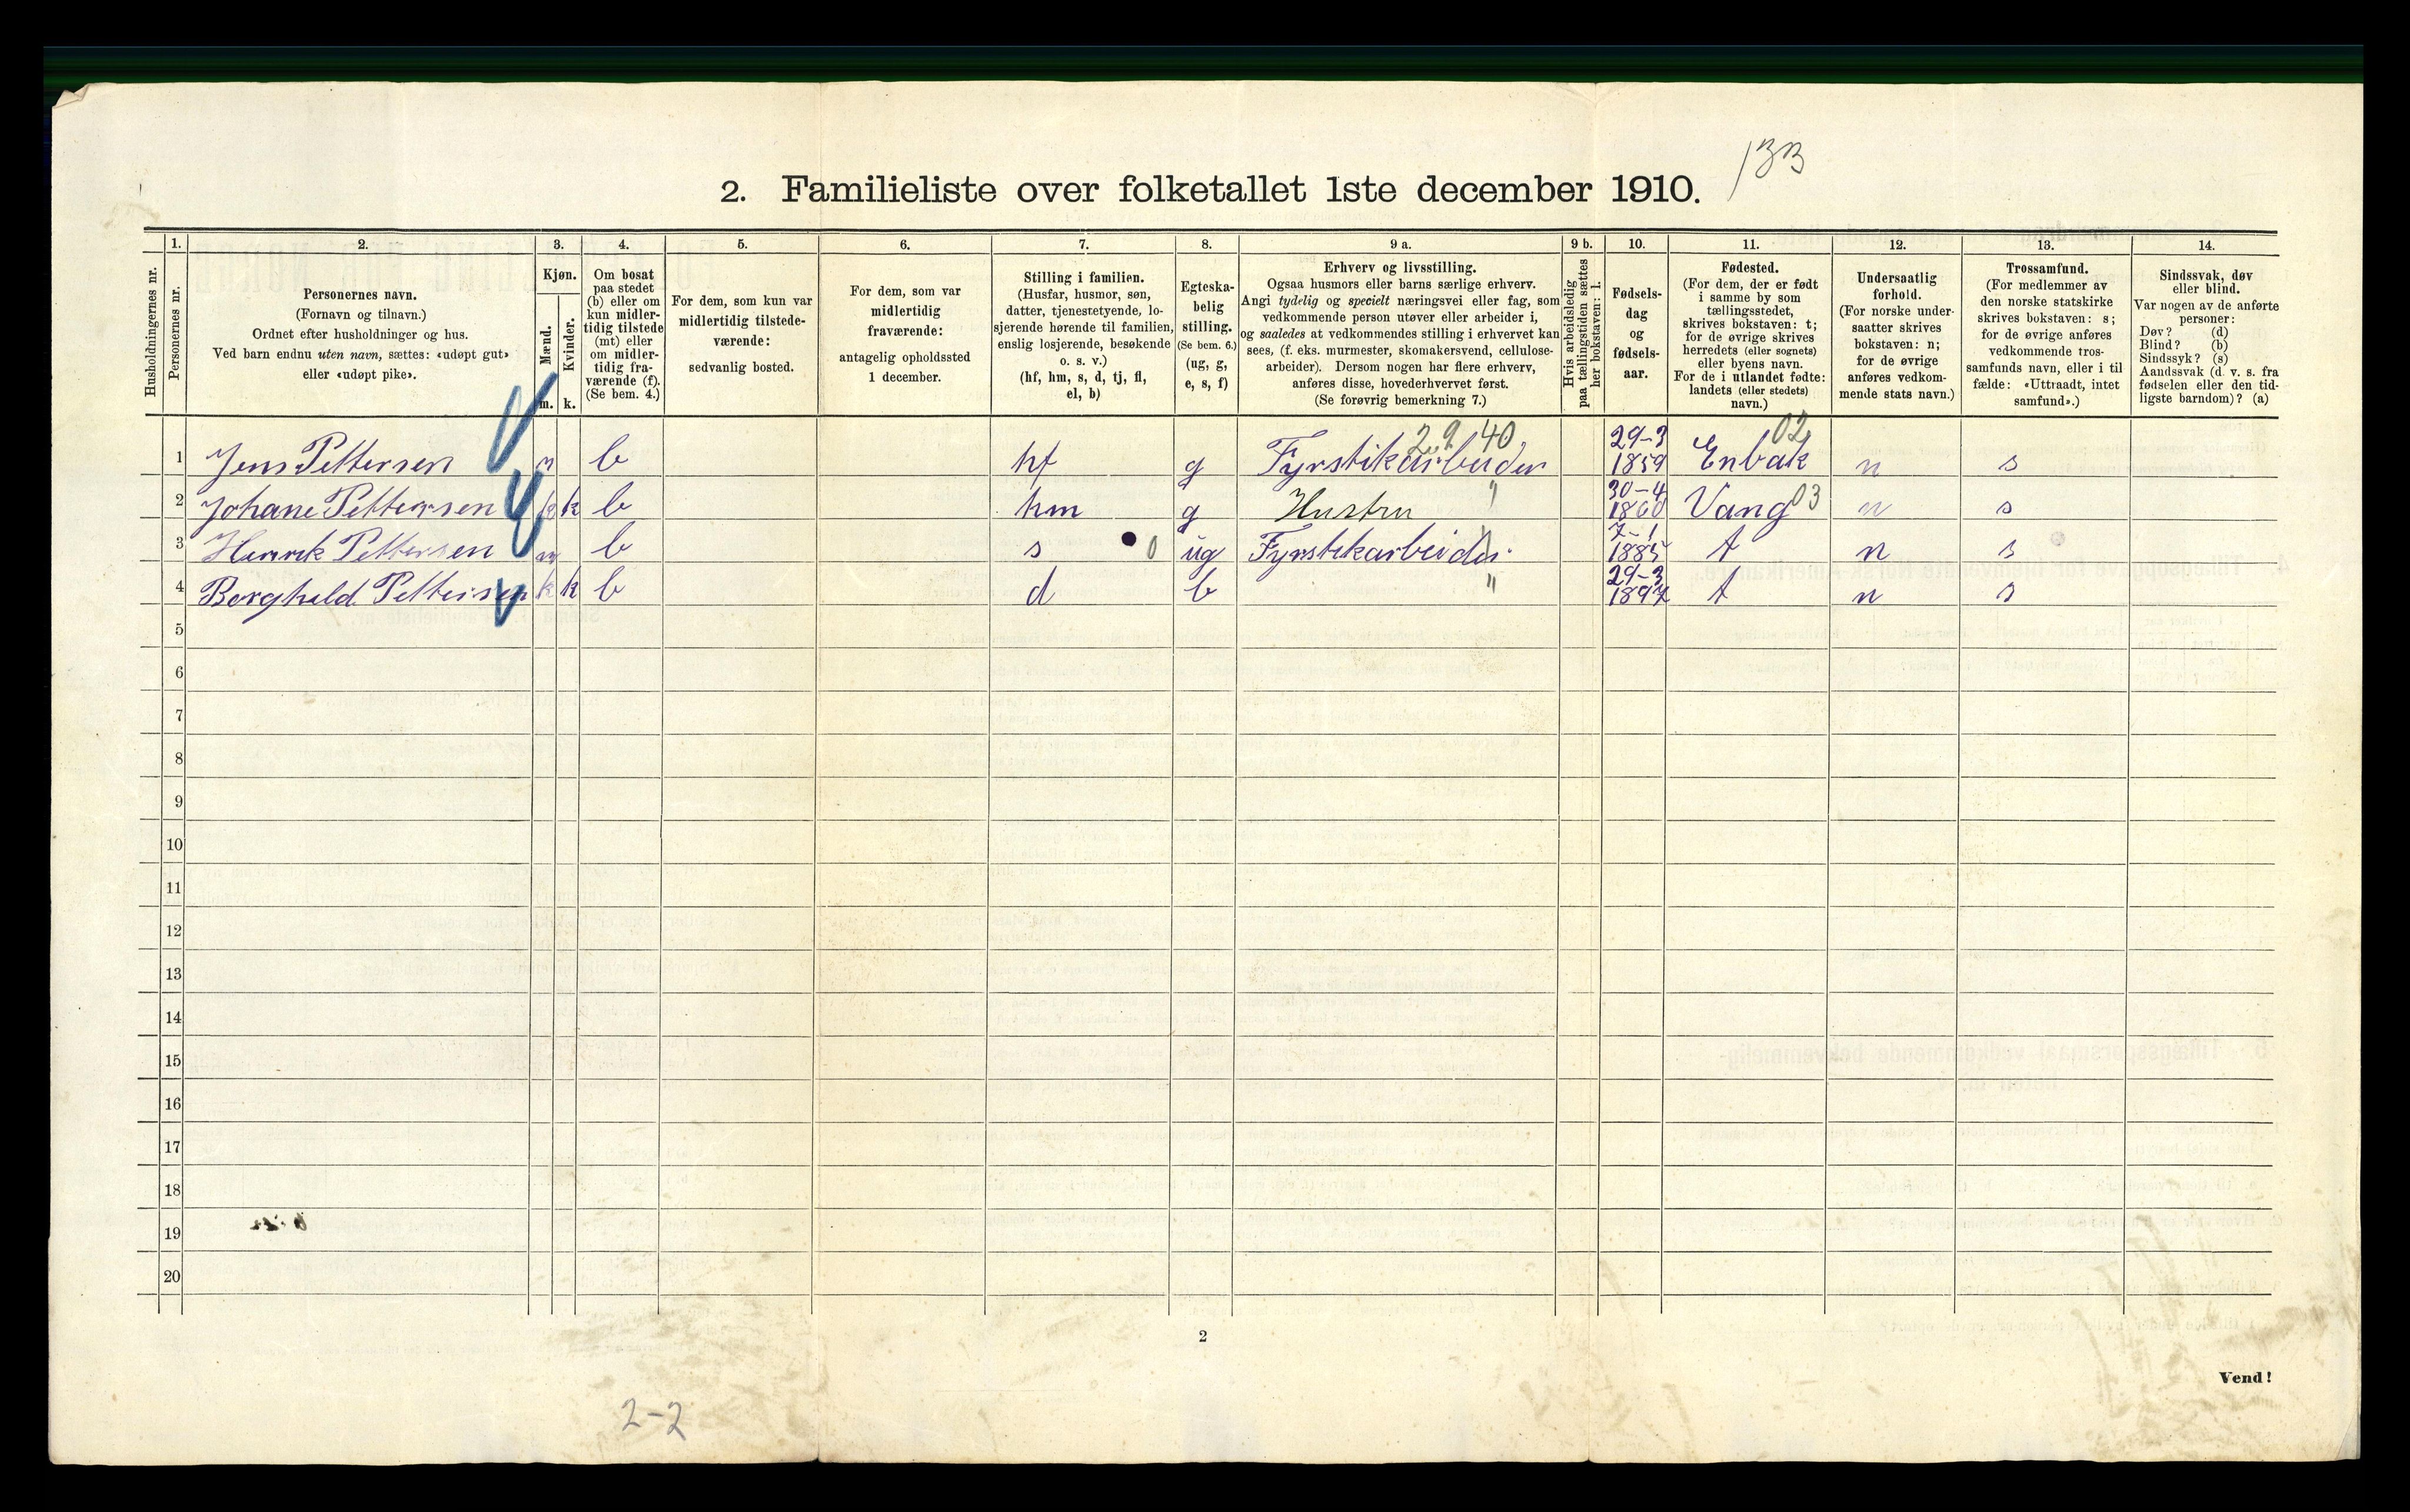 133
2. Familieliste over folketallet 1ste december 1910.
Husholdningernes nr.
1.
Personernes nr.
2.
Personernes navn.
(Fornavn og tilnavn.)
Ordnet efter husholdninger og hus.
Ved barn endnu uten navn, sættes: «udøpt gut»
eller «udøpt pike».
3.
Kjøn.
Mænd.
Kvinder.
m. k.
4.
Om bosat
paa stedet
(b) eller om
kun midler-
tidig tilstede
(mt) eller
om midler-
tidig fra-
værende (f).
(Se bem. 4.)
5.
For dem, som kun var
midlertidig tilstede-
værende:
sedvanlig bosted.
6.
For dem, som var
midlertidig
fraværende:
antagelig opholdssted
1 december.
7.
Stilling i familien.
(Husfar, husmor, søn,
datter, tjenestetyende, lo-
sjerende hørende til familien,
enslig losjerende, besøkende
o. s. v.)
(hf, hm, s, d, tj, fl,
el, b)
8.
Egteska-
belig
stilling.
(Se bem. 6.)
(ug, g,
e, s, f)
9 a.
Erhverv og livsstilling.
Ogsaa husmors eller barns særlige erhverv.
Angi tydelig og specielt næringsvei eller fag, som
vedkommende person utøver eller arbeider i,
og saaledes at vedkommendes stilling i erhvervet kan
sees, (f. eks. murmester, skomakersvend, cellulose-
arbeider). Dersom nogen har flere erhverv,
anføres disse, hovederhvervet først.
(Se forøvrig bemerkning 7.)
9 b.
Hvis arbeidsledig
paa tællingstiden sættes
her bokstaven: l.
10.
Fødsels-
dag
og
fødsels-
aar.
11.
Fødested.
(For dem, der er født
i samme by som
tællingsstedet,
skrives bokstaven: t;
for de øvrige skrives
herredets (eller sognets)
eller byens navn.
For de i utlandet fødte:
landets (eller stedets)
navn.)
12.
Undersaatlig
forhold.
(For norske under-
saatter skrives
bokstaven: n;
for de øvrige
anføres vedkom-
mende stats navn.)
13.
Trossamfund.
(For medlemmer av
den norske statskirke
skrives bokstaven: s;
for de øvrige anføres
vedkommende tros-
samfunds navn, eller i til
fælde: «Uttraadt, intet
samfund».)
14.
Sindssvak, døv
eller blind.
Var nogen av de anførte
personer:
Døv? (d)
Blind? (b)
Sindssyk? (s)
Aandssvak (d. v. s. fra
fødselen eller den tid-
ligste barndom)? (a)
1 Jens Pettersen m b hf g Fyrstikarbeider 29 40 29-3 1859 Enbak 02 n s
2 Johane Pettersen k k b hm g Hustru " 30-4 1860 Vang 03 n s
3 Henrik Pettersen m b s 0 ug Fyrstikarbeider " 7-1 1885 t n s
4 Borghild Pettersen k k b d b " 29-3 1897 t n s
5
6
7
8
9
10
11
12
13
14
15
16
17
18
19
20
2
Vend!
2-2